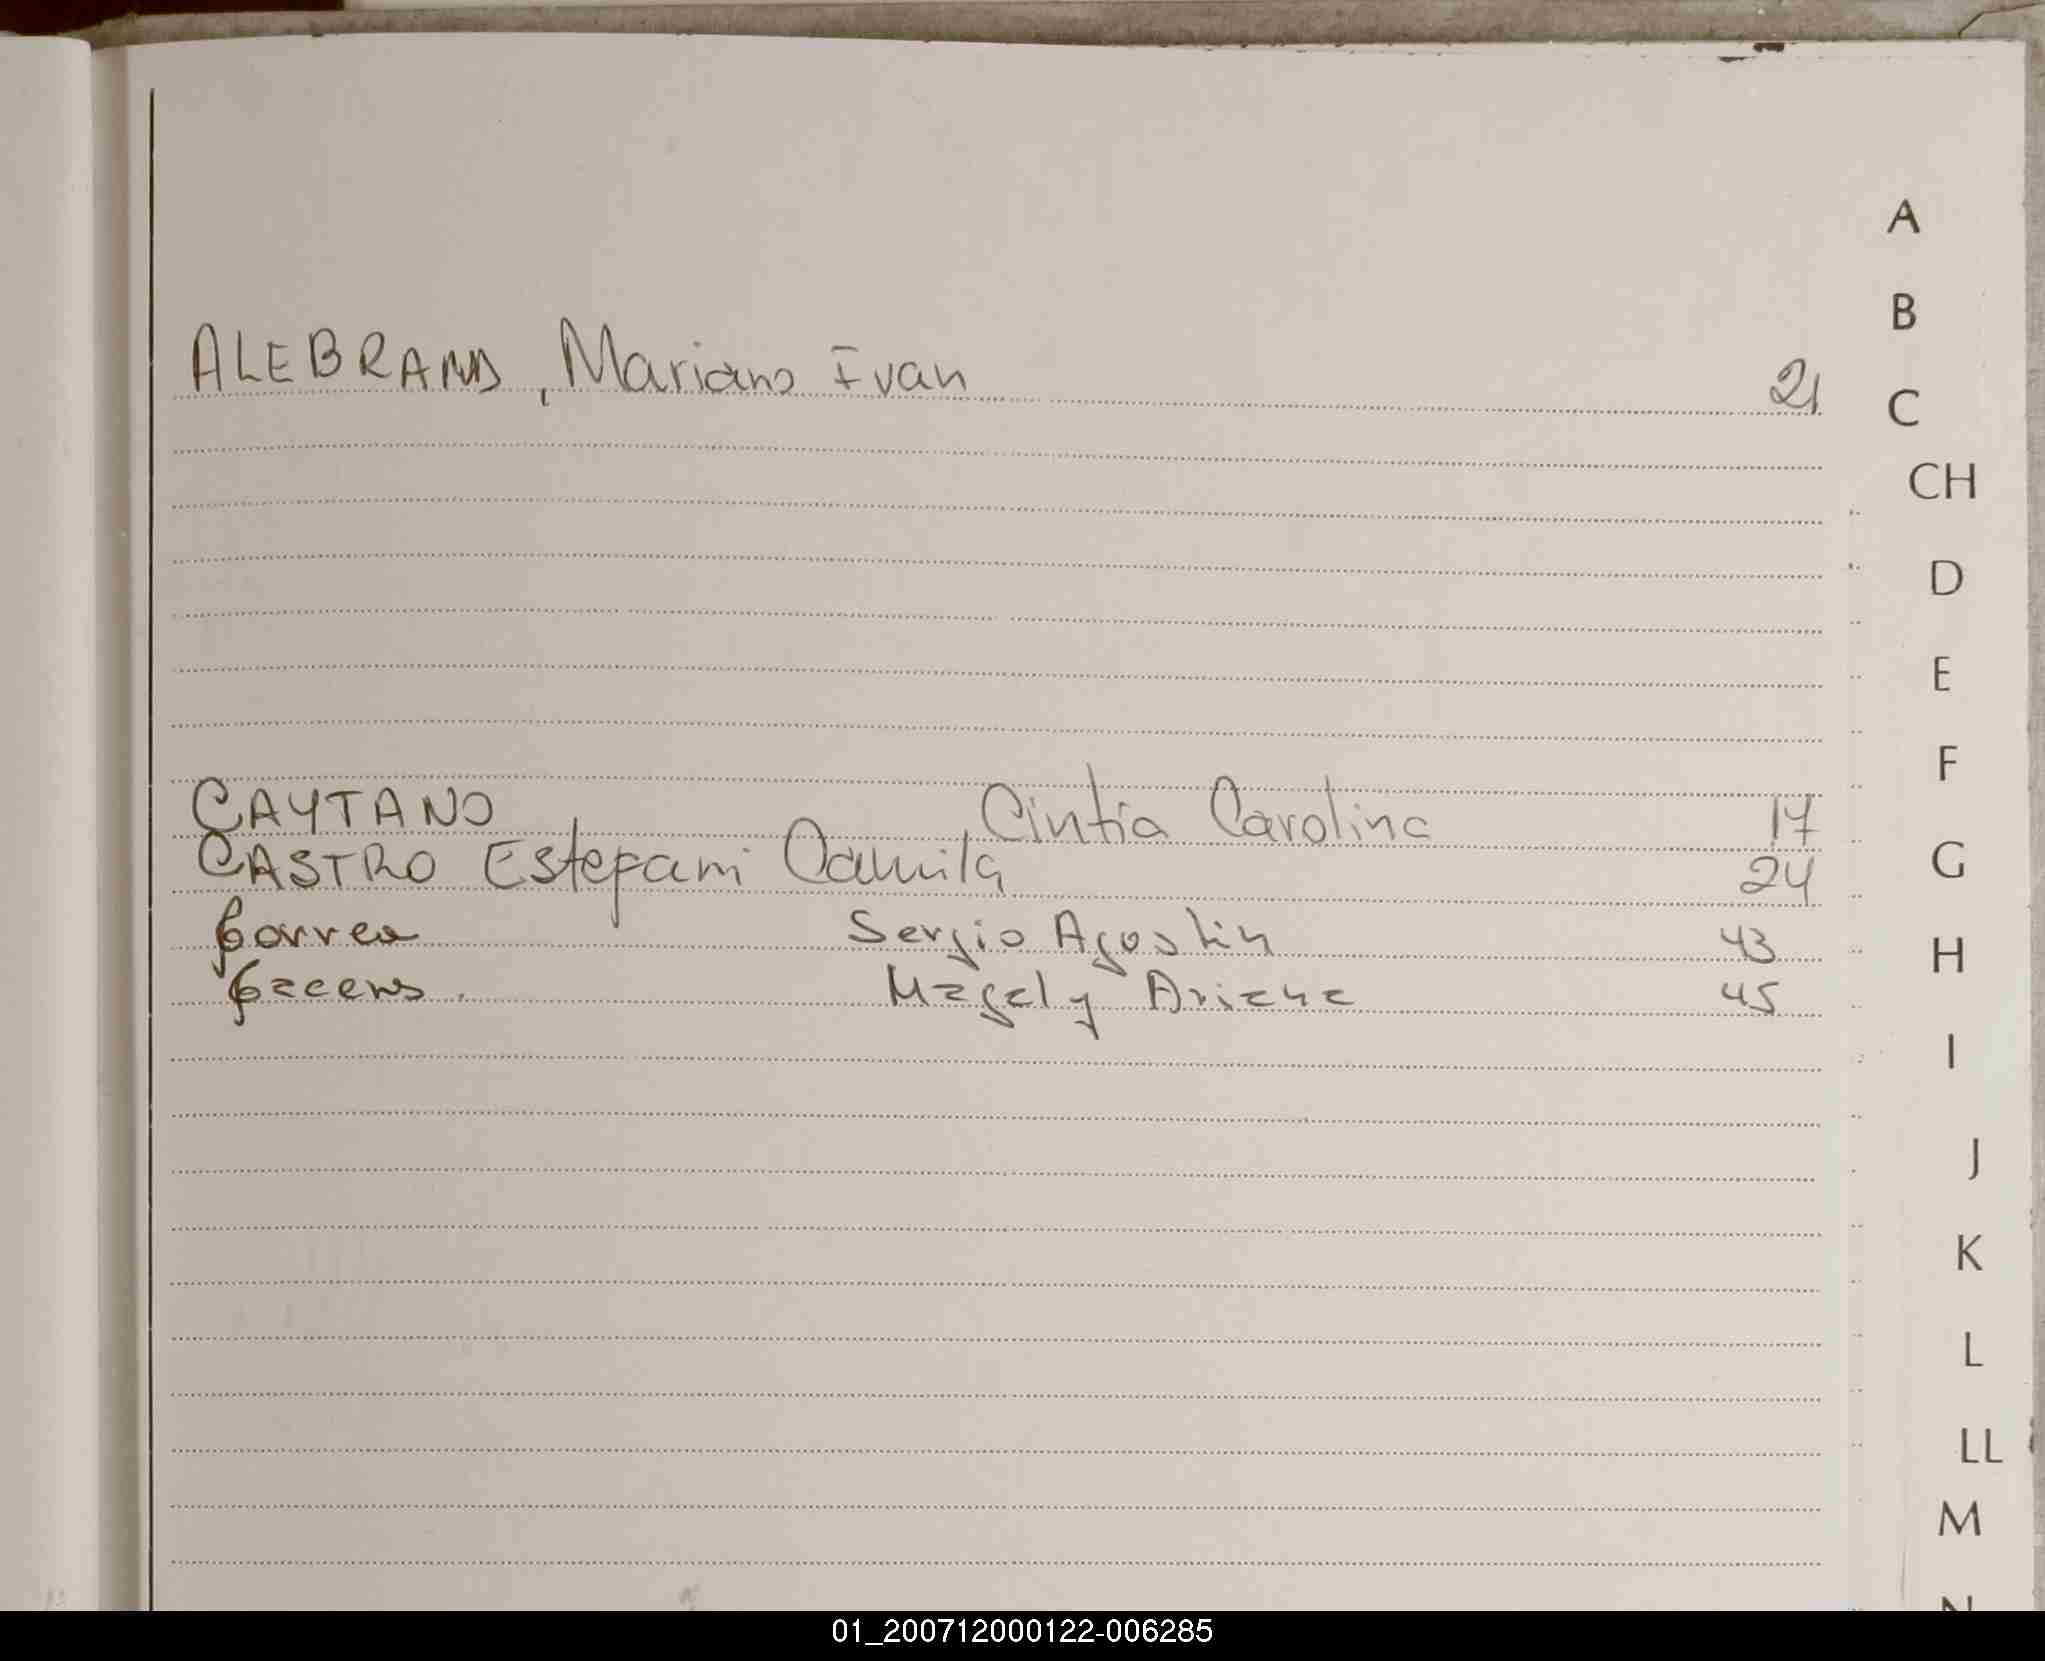 A
B
ALEBRAND, Mariano Ivan 21
C
CH
D
E
F
CAYTANO, Cintia Carolina 17
CASTRO Estefani Camila 24
G
Correa Sergio Agostin 43
H
Magaly Ariana 45
I
J
K
L
LL
M
N
01_200712000122-006285